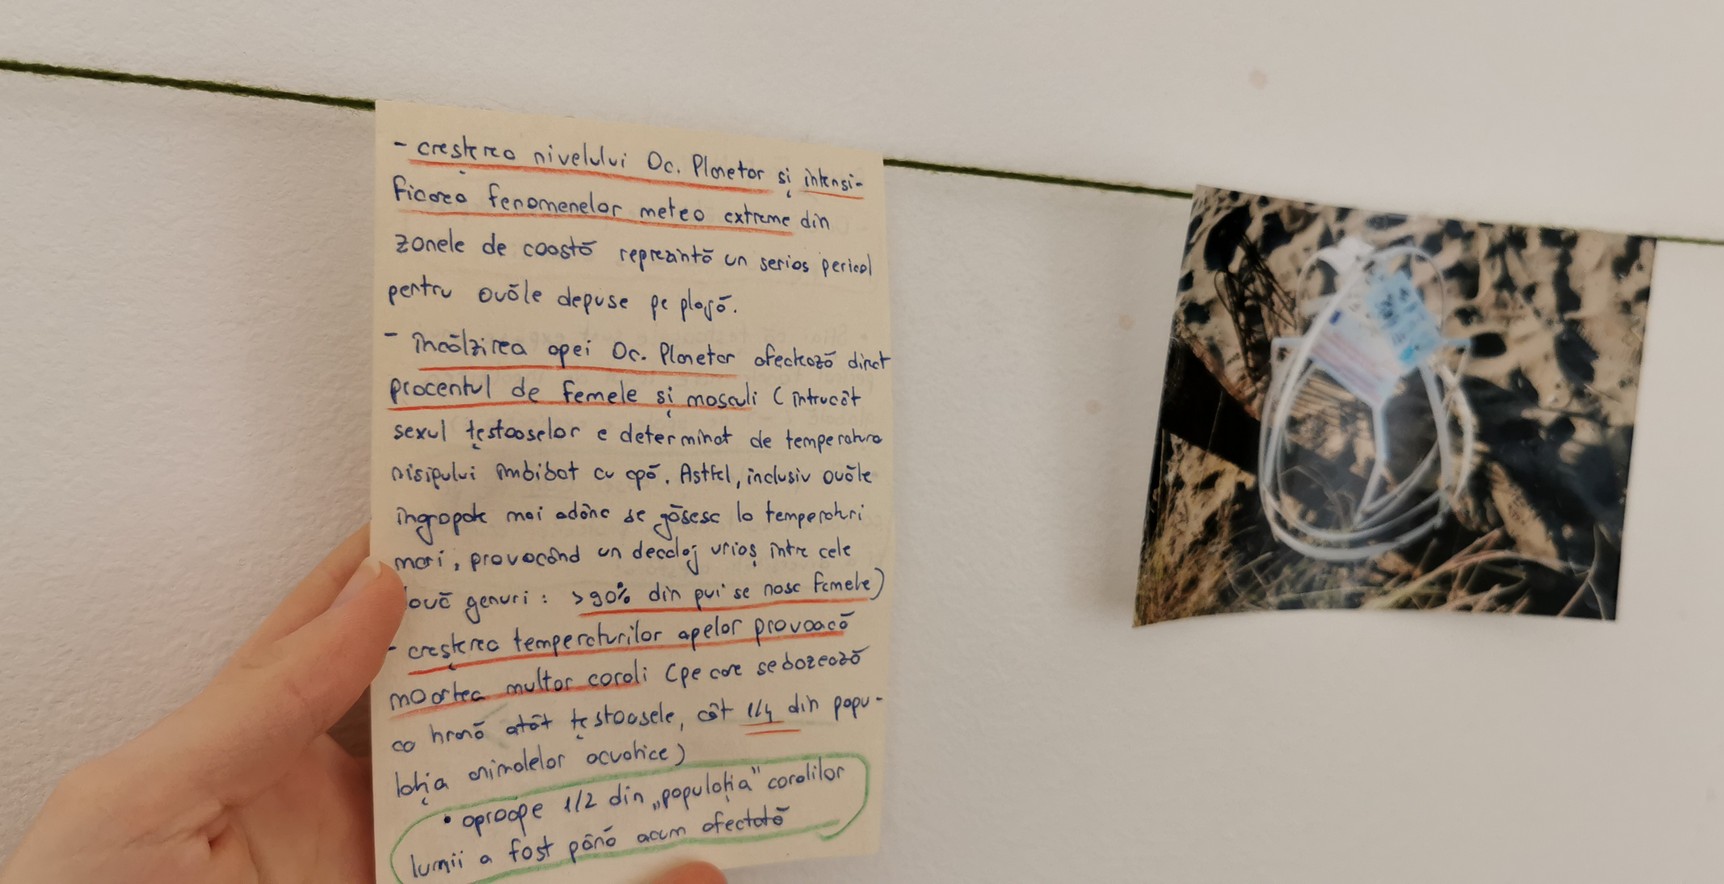 - creșterea nivelului Oc. Planetar și intensi-
ficarea fenomenelor meteo extreme din
zonele de coastă reprezintă un serios pericol
pentru ouăle depuse pe plajă.
- încălzirea apei Oc. Planetar afectează direct
procentul de femele și masculi (întrucât
sexul țestoaselor e determinat de temperatura
nisipului îmbibat cu apă. Astfel, inclusiv ouăle
îngropate mai adânc se găsesc la temperaturi
mari, provocând un decalaj uriaș între cele
două genuri: >90% din pui se nasc femele)
- creșterea temperaturilor apelor provoacă
moartea multor corali (pe care se bazează
ca hrană atât țestoasele, cât 1/4 din popu-
lația animalelor acvatice)
• aproape 1/2 din „populația" coralilor
lumii a fost până acum afectată